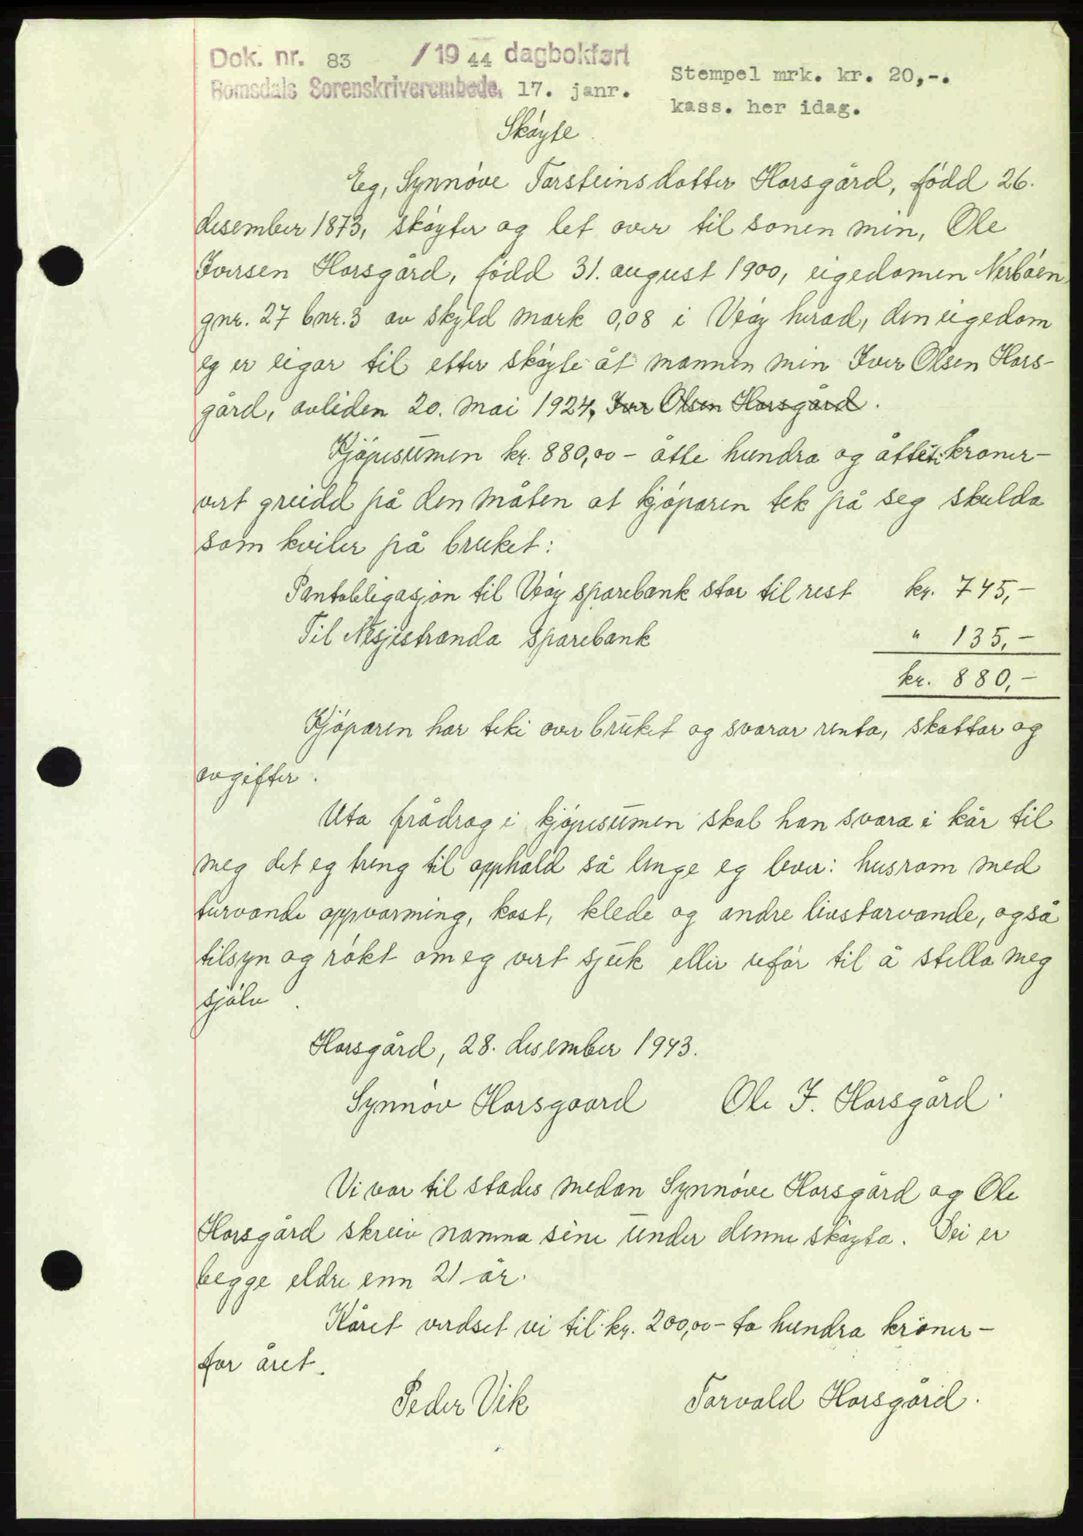 Dok. nr. 83 /1944 dagbokført
Romsdals Sorenskriverembede, 17. janr.
Stempel mrk. kr. 20,-.
kass. her idag.
Skøyte.
Eg, Synnøve Torsteinsdotter Horsgård, född 26.
desember 1873, skøyter og let over til sonen min, Ole
Iversen Horsgård, född 31. august 1900, eigedomen Nerbøen,
gnr. 27 bnr. 3 av skyld mark 0,08 i Veøy herad, den eigedom
eg er eigar til etter skøyte åt mannen min Iver Olsen Hors-
gård, avliden 20. mai 1924, Iver Olsen Horsgård.
Kjøpesumen kr. 880,00 - åtte hundra og åtteti kroner -
vert greidd på den måten at kjøparen tek på seg skulda
som kviler på bruket:
Pantobligasjon til Veøy sparebank stor til rest kr. 745,-
Til Nesjestranda sparebank " 135,-
kr. 880,-
Kjøparen har teki over bruket og svarar renta, skattar og
avgifter.
Uta frådrag i kjøpesumen skal han svara i kår til
meg det eg treng til opphald så lenge eg lever: husrom med
turvande oppvarming, kost, klede og andre livsturvande, også
tilsyn og røkt om eg vert sjuk eller ufør til å stella meg
sjølv.
Horsgård, 28. desember 1943.
Synnøv Horsgaard Ole I. Horsgård.
Vi var til stades medan Synnøve Horsgård og Ole
Horsgård skreiv namna sine under denne skøyta. Dei er
begge eldre enn 21 år.
Kåret verdset vi til kr. 200,00 - to hundra kroner -
for året.
Peder Vik Torvald Horsgård.